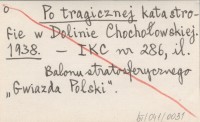 Po tragicznej katastro-
fie w Dolinie Chochołowskiej.
1938. — IKC nr 286, il.
Balonu stratosferycznego
„Gwiazda Polski".